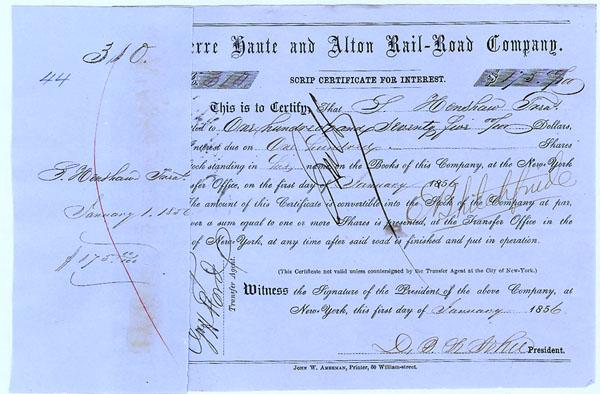 310.
44
S. Henshaw Treas.
January 1. 1856
$175.00/100
erre Haute and Alton Rail-Road Company.
310
SCRIP CERTIFICATE FOR INTEREST.
This is to Certify, That S. Henshaw Treas.
to One hundred and Seventy five Dollars,
terest due on One hundred Shares
ock standing in name on the Books of this Company, at the New-York
sfer Office, on the first day January 1856
he amount of this Certificate is convertible into the Stock of the Company at par,
ver a sum equal to one or more Shares is presented, at the Transfer Office in the
of New-York, at any time after said road is finished and put in operation.
(This Certificate not valid unless countersigned by the Transfer Agent at the City of New-York.)
Transfer Agent.
Witness the Signature of the President of the above Company, at
New-York, this first day of January 1856
President.
JOHN W. AMERMAN, Printer, 60 William-street.